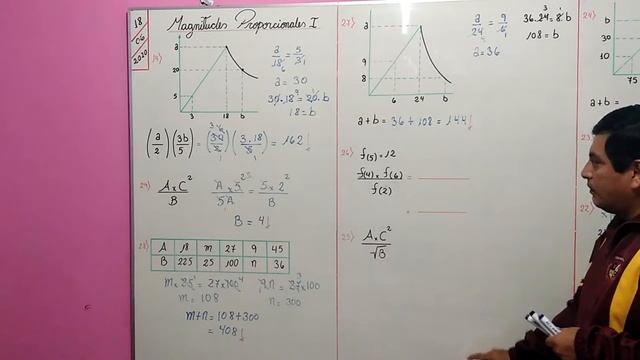 18
06
2020
Magnitudes Proporcionales I
a
20
5
3
18
b
a/18 = 5/3
a = 30
30·18 = 20·b
18 = b
(a/2)(3b/5) = (30/2)(3·18/5) = 162
A×C²/B
A×5²/5A = 5×2²/B
B = 4
A 18 m 27 9 45
B 225 25 100 n 36
m×25 = 27×100
m = 108
9n = 27×100
n = 300
m+n = 108+300
= 408
27)
a
9
8
6
24
b
a/24 = 9/6
a = 36
36·24 = 8·b
108 = b
a+b = 36 + 108 = 144
26)
f(5) = 12
f(4) × f(6) / f(2) =
=
25)
A×C²/√B
24)
b
30
10
75
a+b =